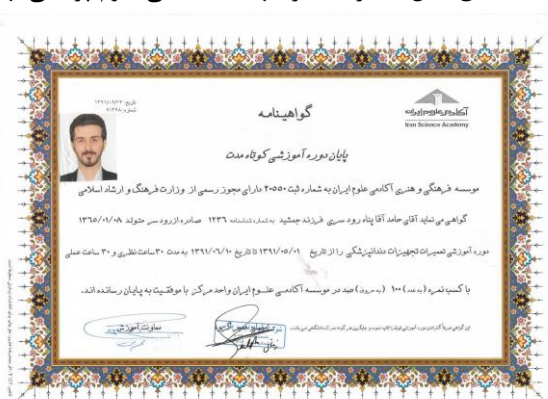 گواهینامه
آکادمی علوم ایران
Iran Science Academy
پایان دوره آموزشی کوتاه مدت
موسسه فرهنگی و هنری آکادمی علوم ایران به شماره ثبت ۲۰۵۵۰ دارای مجوز رسمی از وزارت فرهنگ و ارشاد اسلامی
گواهی می نماید آقای حامد آقا پناه رود سری فرزند جمشید به شماره شناسنامه ۱۲۳۶ صادره از رود سر متولد ۱۳۶۵/۰۱/۰۸
دوره آموزشی تعمیرات تجهیزات دندانپزشکی را از تاریخ ۱۳۹۱/۰۵/۰۱ تا تاریخ ۱۳۹۱/۰۶/۱۰ به مدت ۳۰ ساعت نظری و ۳۰ ساعت عملی
با کسب نمره (به عدد) ۱۰۰ (به حروف) صد در موسسه آکادمی علوم ایران واحد مرکز با موفقیت به پایان رسانده اند.
معاونت آموزش